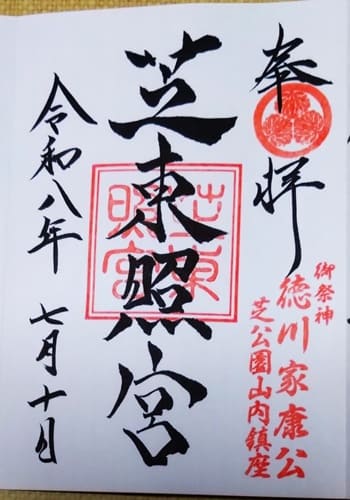 奉拝
御祭神
徳川家康公
芝公園山内鎮座
芝東照宮
芝東
照宮
令和八年 七月十日